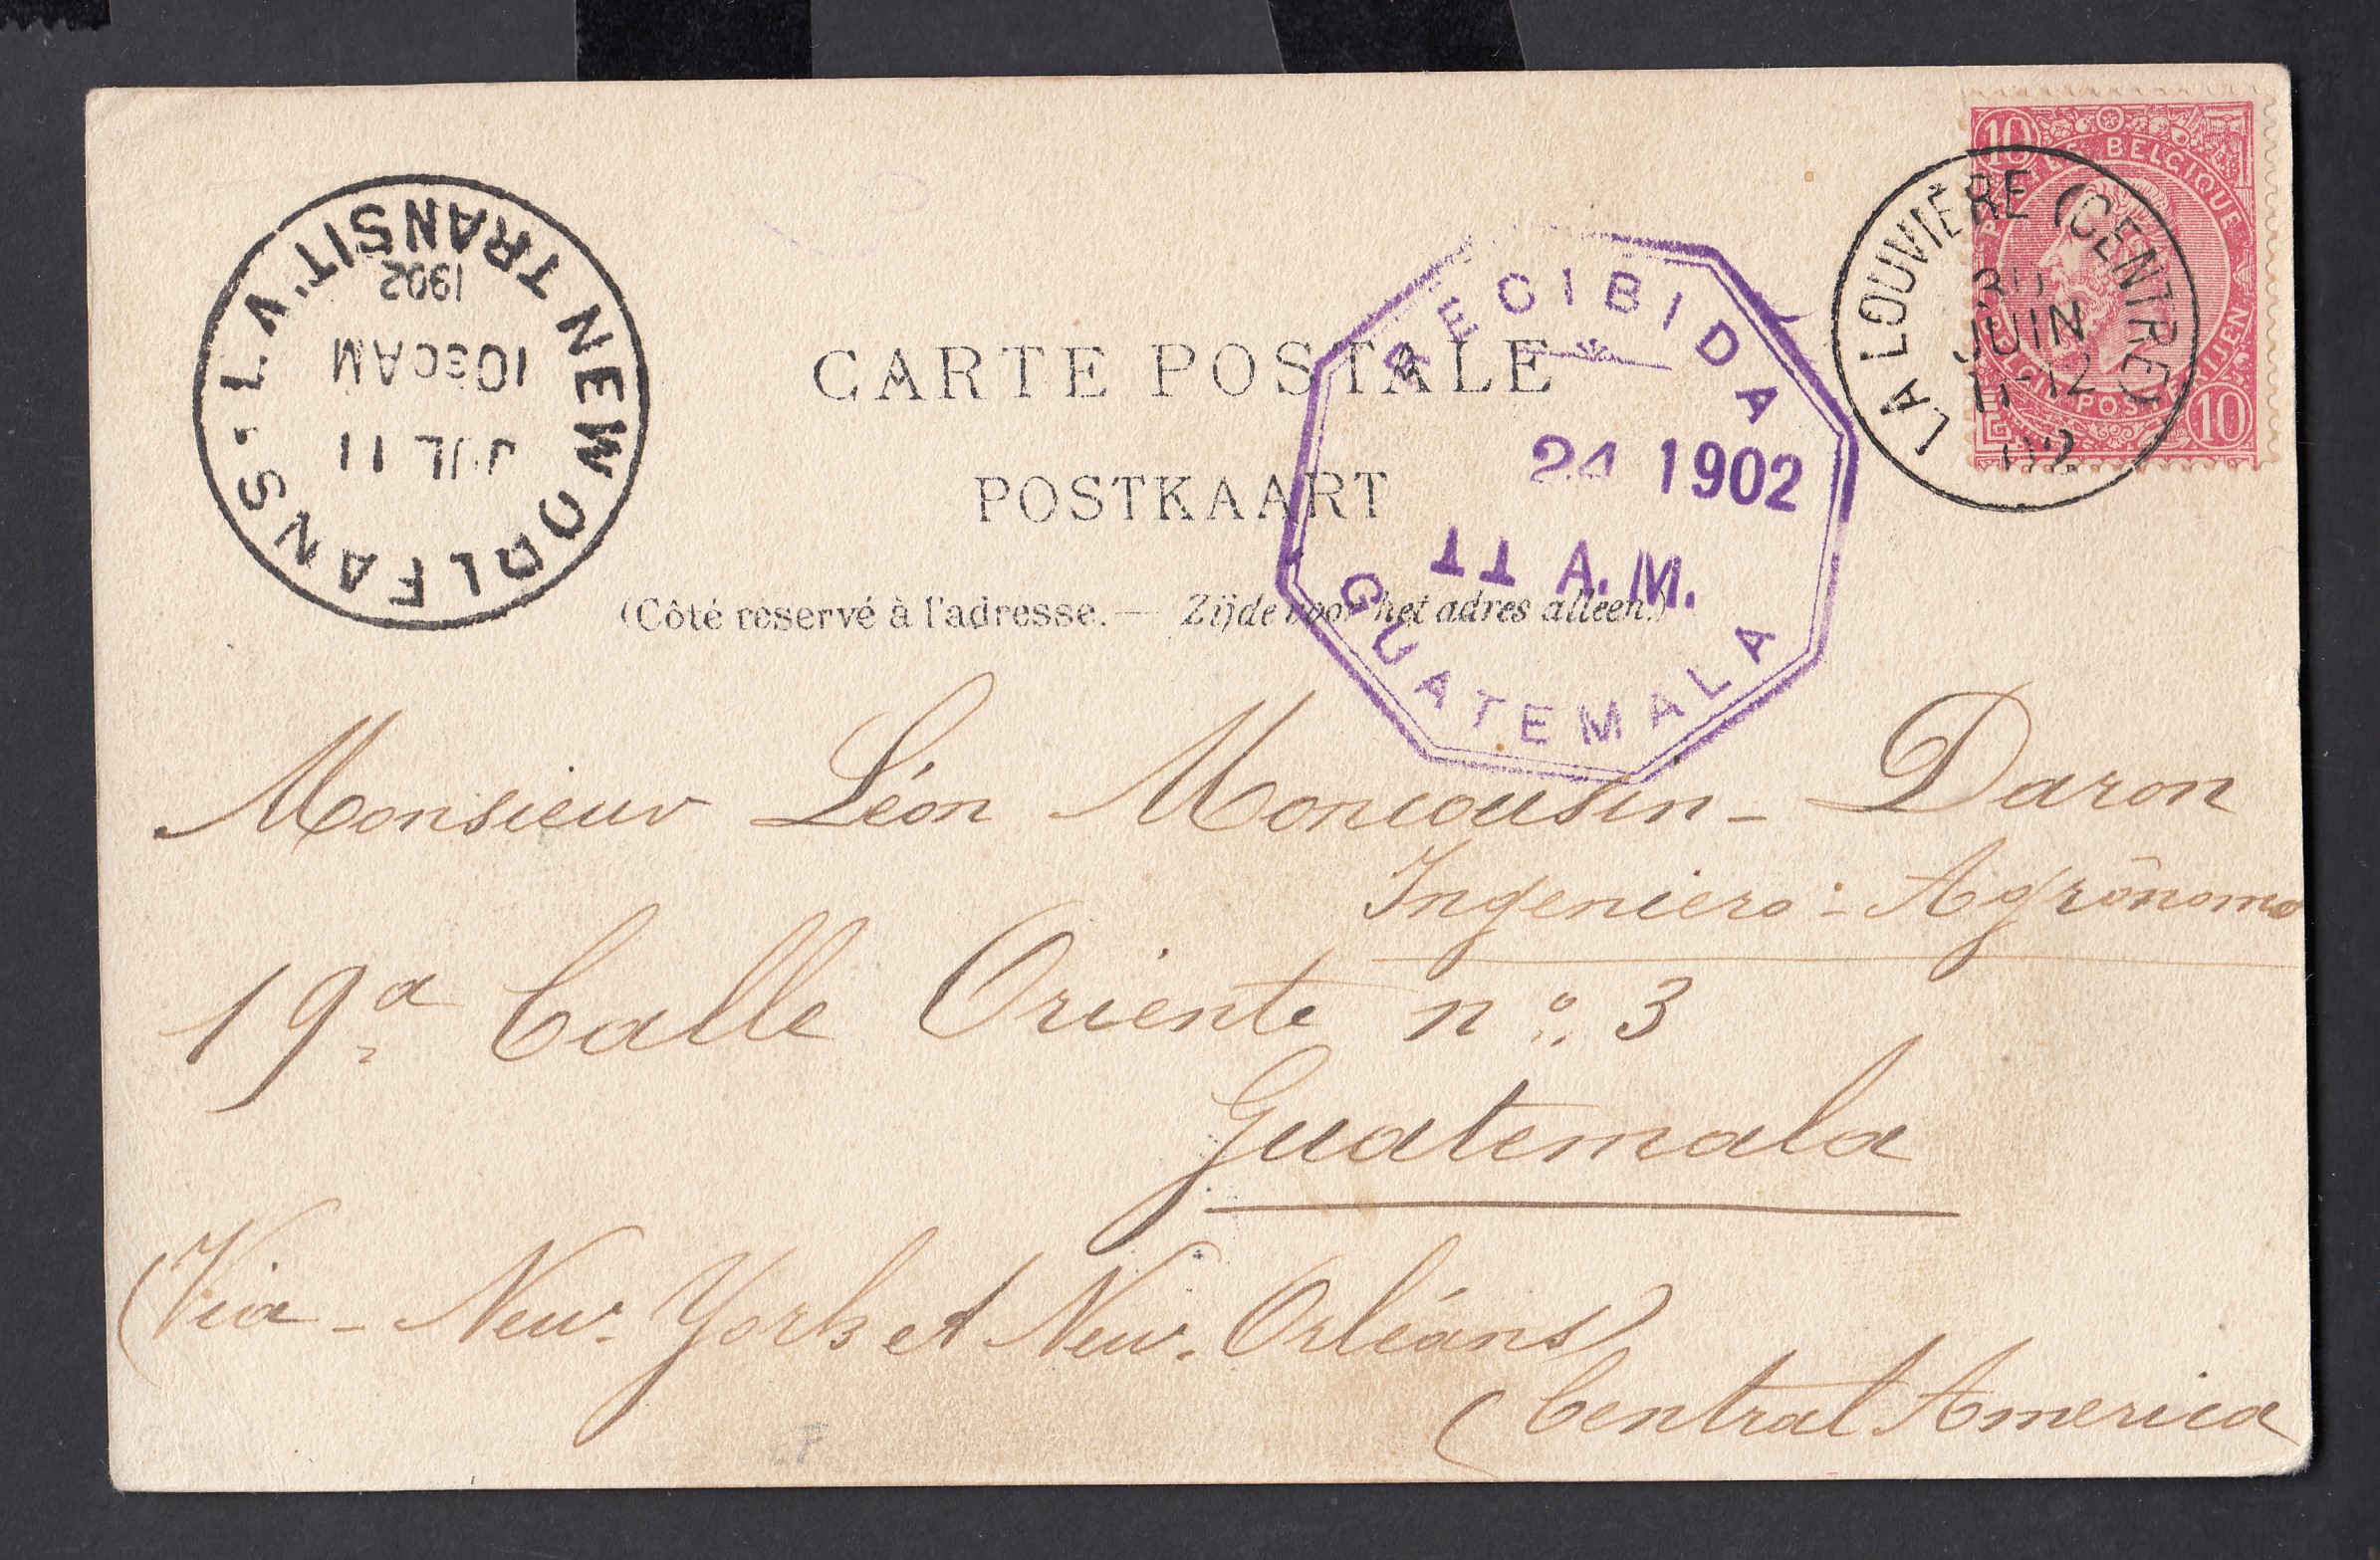 CARTE POSTALE
POSTKAART
(Côté réservé à l'adresse. — Zijde voor het adres alleen.)
NEW ORLEANS. LA. TRANSIT
1902
10 30 AM
JUL 11
RECIBIDA
24 1902
11 A.M.
GUATEMALA
10
POSTES BELGIQUE
BELGIE POSTERIJEN
10
LA LOUVIÈRE (CENTRE)
30
JUIN
11-12
02
Monsieur Léon Moncousin - Daron
Ingeniero - Agrônomo
19ª Calle Oriente nº 3
Guatemala
(Via - New-York et New-Orléans)
(Central America